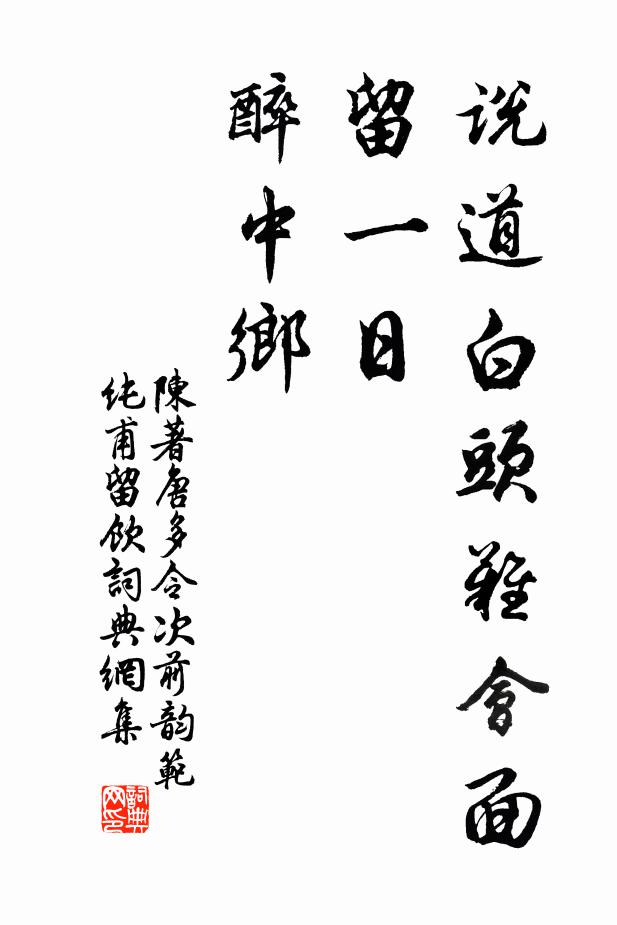 説道白頭難會面
留一日
醉中鄉
陳著唐多令次前韵範
純甫留飲詞典網集
詞典
网印